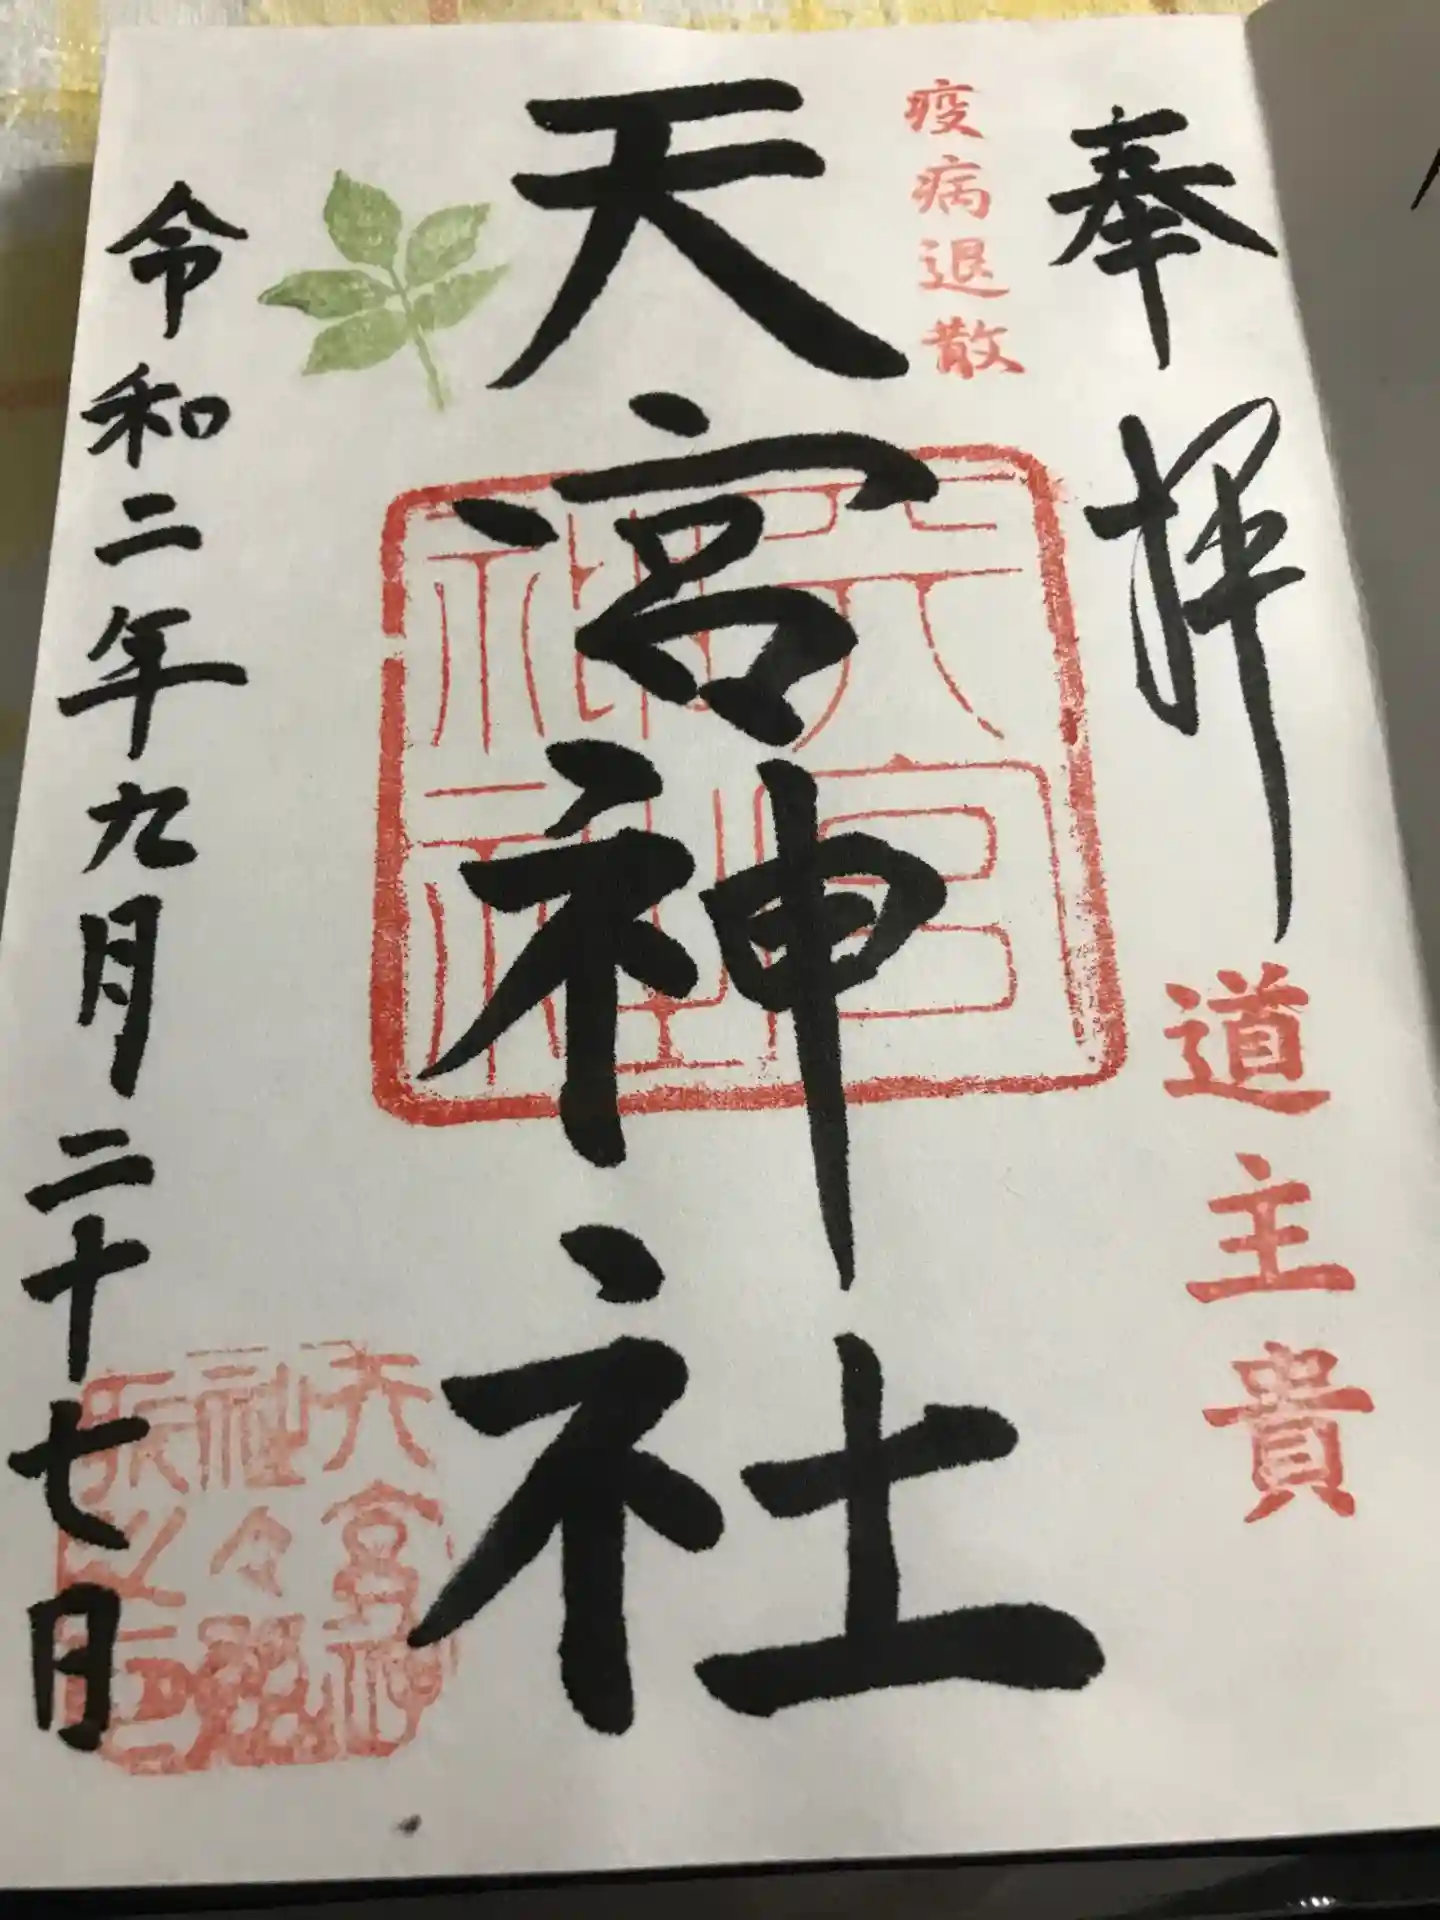 奉拝
道主貴
疫病退散
天宮神社
天宮
神社
令和二年九月二十七日
天宮神
社々務